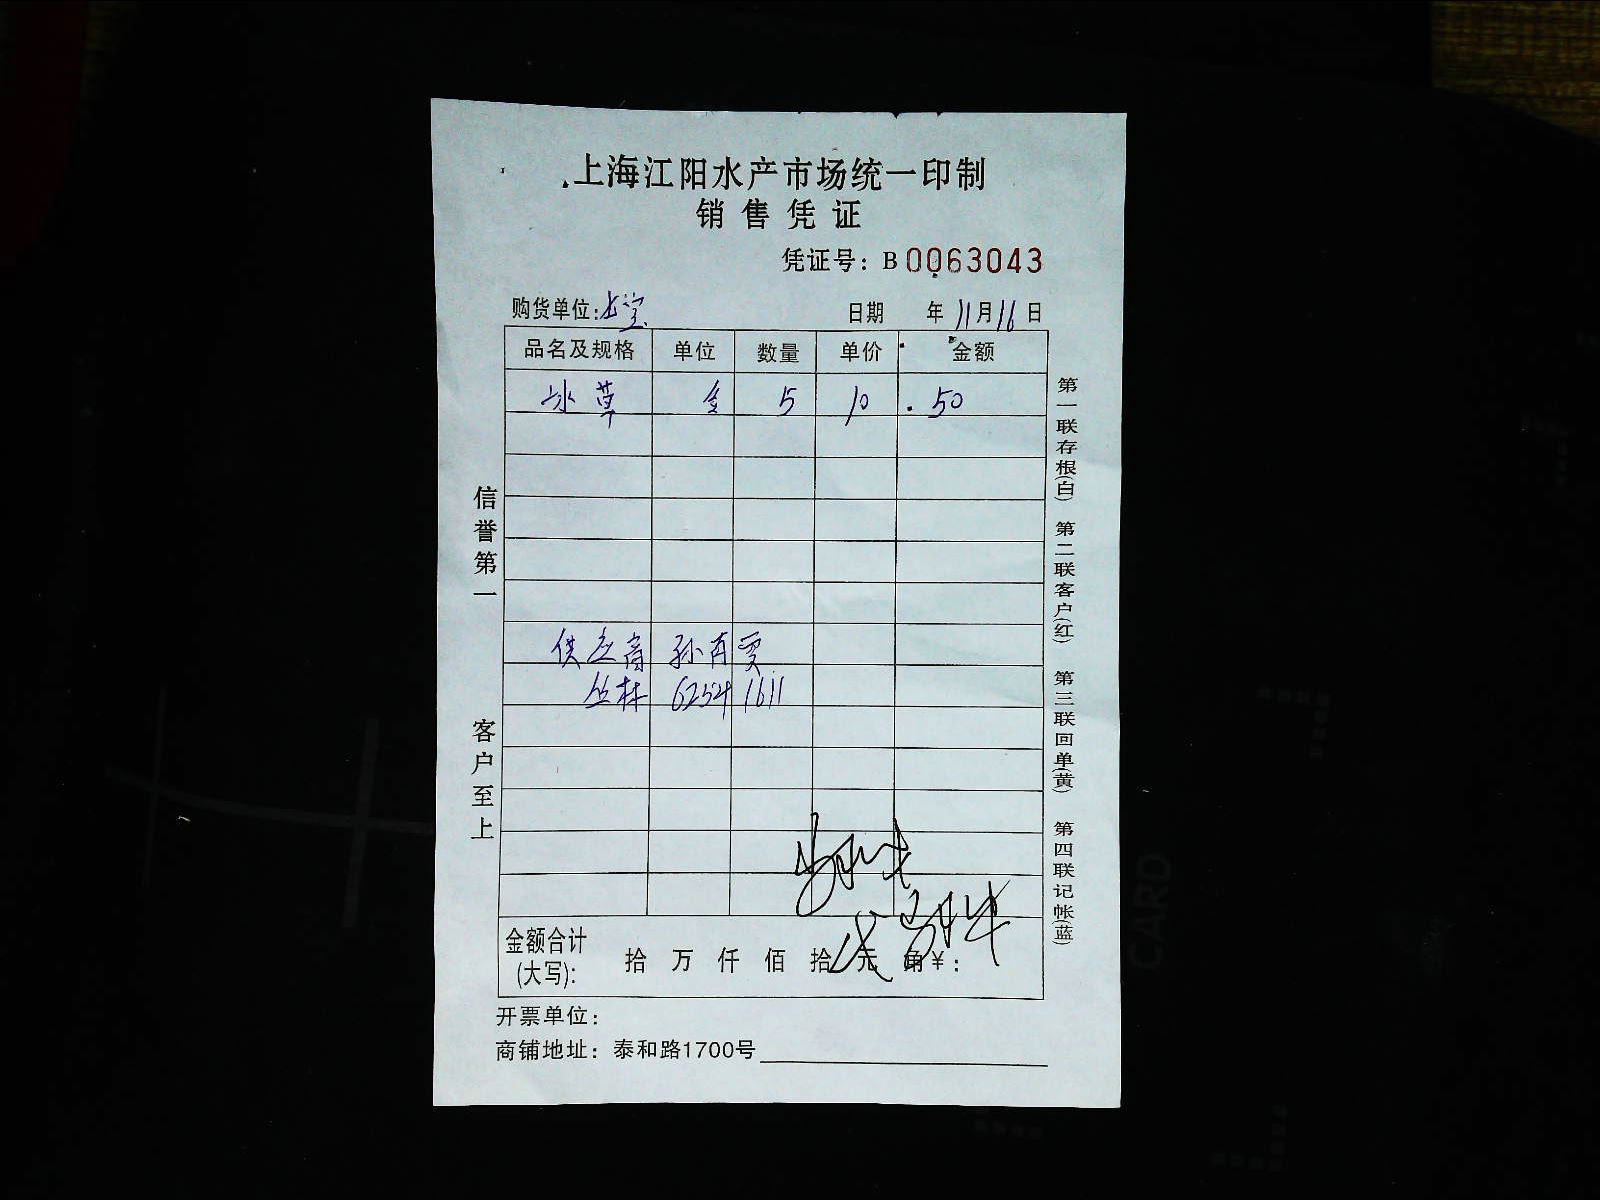 上海江阳水产市场统一印制
销售凭证
凭证号：B 0063043
购货单位：
日期 年 11 月 16 日
品名及规格 单位 数量 单价 金额
冰草 5 10 50
供应商 孙肖贾
丛林 6254 1611
金额合计
(大写): 拾 万 仟 佰 拾 元 角 ￥:
开票单位：
商铺地址：泰和路1700号
信誉第一 客户至上
第一联存根(白) 第二联客户(红) 第三联回单(黄) 第四联记帐(蓝)